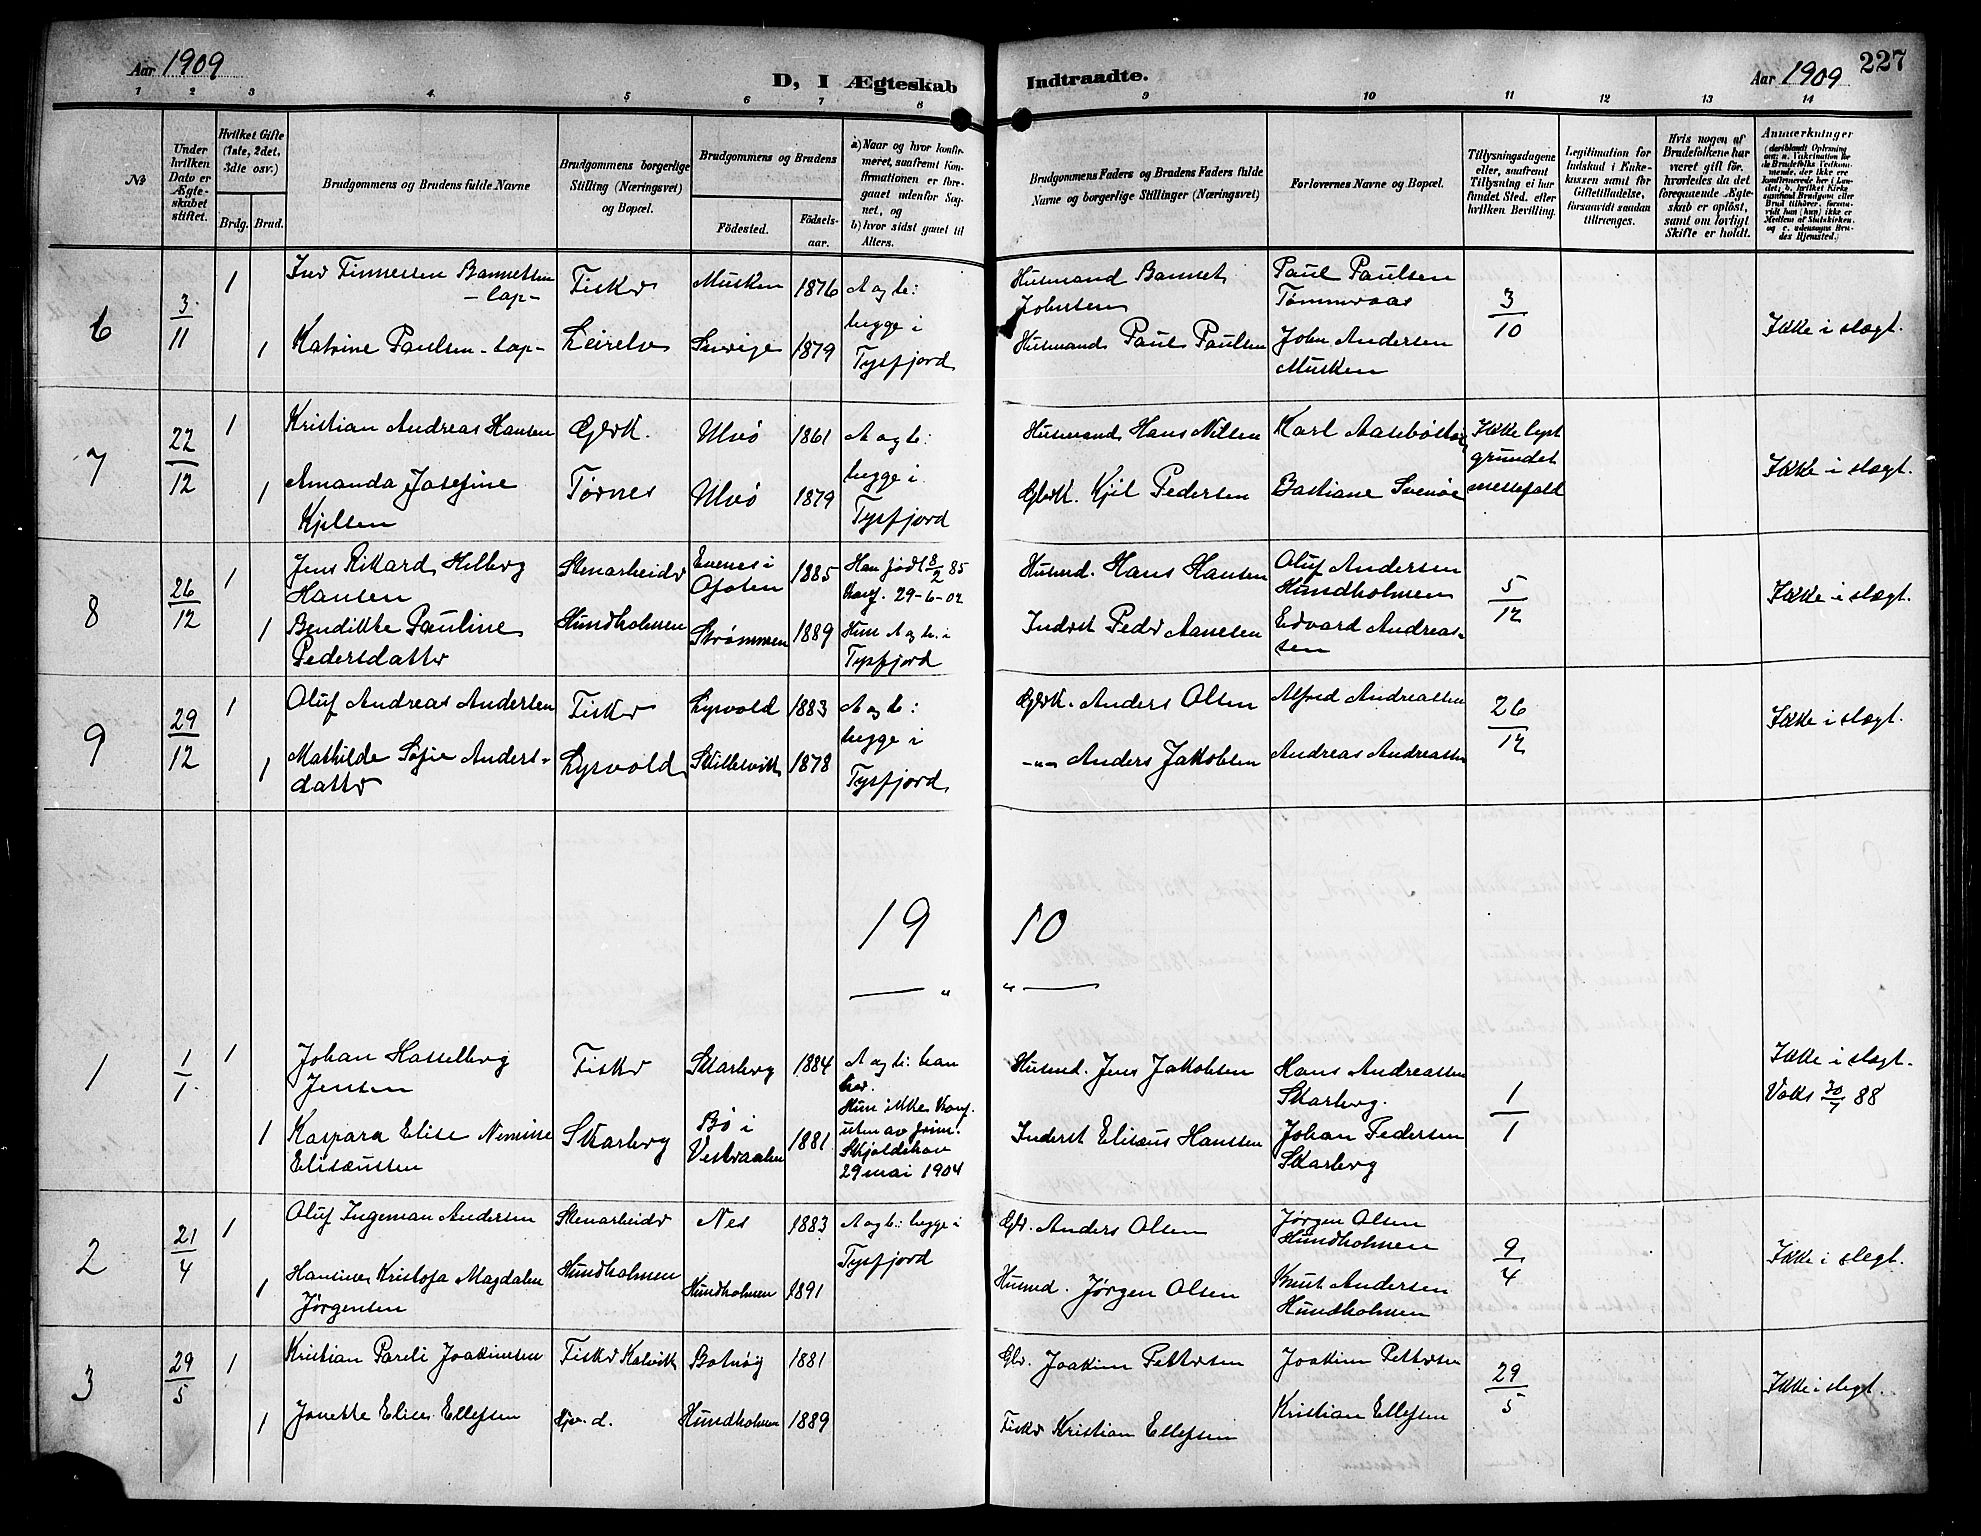 Aar 1909
D, I Ægteskab
Indtraadte.
Aar 1909
227
1 2 3 4 5 6 7 8 9 10 11 12 13 14
№
Under hvilken Dato er Ægteskabet stiftet.
Hvilket Gifte (1ste, 2det, 3die osv.)
Brdg. Brud.
Brudgommens og Brudens fulde Navne
Brudgommens borgerlige Stilling (Næringsvei) og Bopæl.
Brudgommens og Brudens
Födested.
Födselsaar.
a) Naar og hvor konfirmeret, saafremt Konfirmationen er foregaaet udenfor Sognet, og
b) hvor sidst gaaet til Alters.
Brudgommens Faders og Brudens Faders fulde Navne og borgerlige Stillinger (Næringsvei)
Forlovernes Navne og Bopæl.
Tillysningsdagene eller, saafremt Tillysning ei har fundet Sted, efter hvilken Bevilling.
Legitimation for Indskud i Enkekassen samt for Giftetilladelse, forsaavidt saadan tiltrænges.
Hvis nogen af Brudefolkene har været gift för, hvorledes da det foregaaende Ægteskab er oplöst, samt om lovligt Skifte er holdt.
Anmærkninger
6
3/11
1
Finnessen Bannetsen
- lap -
Fisker
Musken
1876
A og b:
begge i
Tysfjord
Husmand Bannet
Johnsen
Paul Paulsen
Tømmeraas
3/10
Ikke i slægt.
1
Katrine Paulsen - lap -
Leirelv
Sverige
1879
Husmand Paul Paulsen
John Andersen
Musken
7
22/12
1
Kristian Andreas Hansen
Gbrk.
Ulvö
1861
A og b:
begge i
Tysfjord
Husmand Hans Nilsen
Karl
Ikke lyst
grundet
messefald
Ikke i slægt.
1
Amanda Josefine
Kjelsen
Tørnes
Ulvö
1879
Gbrk. Kjel Pedersen
Bastiane Svenöe
8
26/12
1
Jens Rikard Helberg
Hansen
Stenarbeider
Evenes i
Ofoten
1885
Han födt 8/2 85
Konf. 29-6-02
Husmd. Hans Hansen
Oluf Andersen
Hundholmen
5/12
Ikke i slægt.
1
Bendikte Pauline
Pedersdatter
Hundholmen
Strømmen
1889
Hun A og b. i
Tysfjord
Inderst Peder Aanesen
Edvard Andreas-
sen
9
29/12
1
Oluf Andreas Andersen
Fisker
Lysvold
1883
A og b:
begge i
Tysfjord
Gbrk. Anders Olsen
Alfred Andreassen
26/12
Ikke i slægt.
1
Mathilde Sofie Anders-
datter
Lysvold
Skillesvik
1878
-"- Anders Jakobsen
Andreas Andreassen
19 10
1
1/1
1
Johan Hasselberg
Jensen
Fisker
Skarberg
1884
A og b: han
her.
Hun ikke konf.
uten av
29 mai 1904
Husmd. Jens Jakobsen
Hans Andreassen
Skarberg.
1/1
Ikke i slægt.
Vaks 30/7 88
1
Kaspara Elise Nemine
Elisæussen
Skarberg
Bø i
Vesteraalen
1881
Inderst Elisæus Hanssen
Johan Pedersen
Skarberg
2
21/4
1
Oluf Ingeman Andersen
Stenarbeider
Nes
1883
A og b: begge i
Tysfjord
Gbr. Anders Olsen
Jørgen Olsen
Hundholmen
9/4
Ikke i slegt.
1
Hansine Kristofa Magdalen
Jørgensen
Hundholmen
Hundholmen
1891
Husmd. Jørgen Olsen
Knut Andersen
Hundholmen
3
29/5
1
Kristian Pareli Joakimsen
Fisker Kalvik
Botnöy
1881
Gbr. Joakim Pettersen
Joakim Pettersen
29/5
Ikke i slegt.
1
Jonette Elise Ellefsen
Hundholmen
1889
Fisker Kristian Ellefsen
Kristian Ellefsen